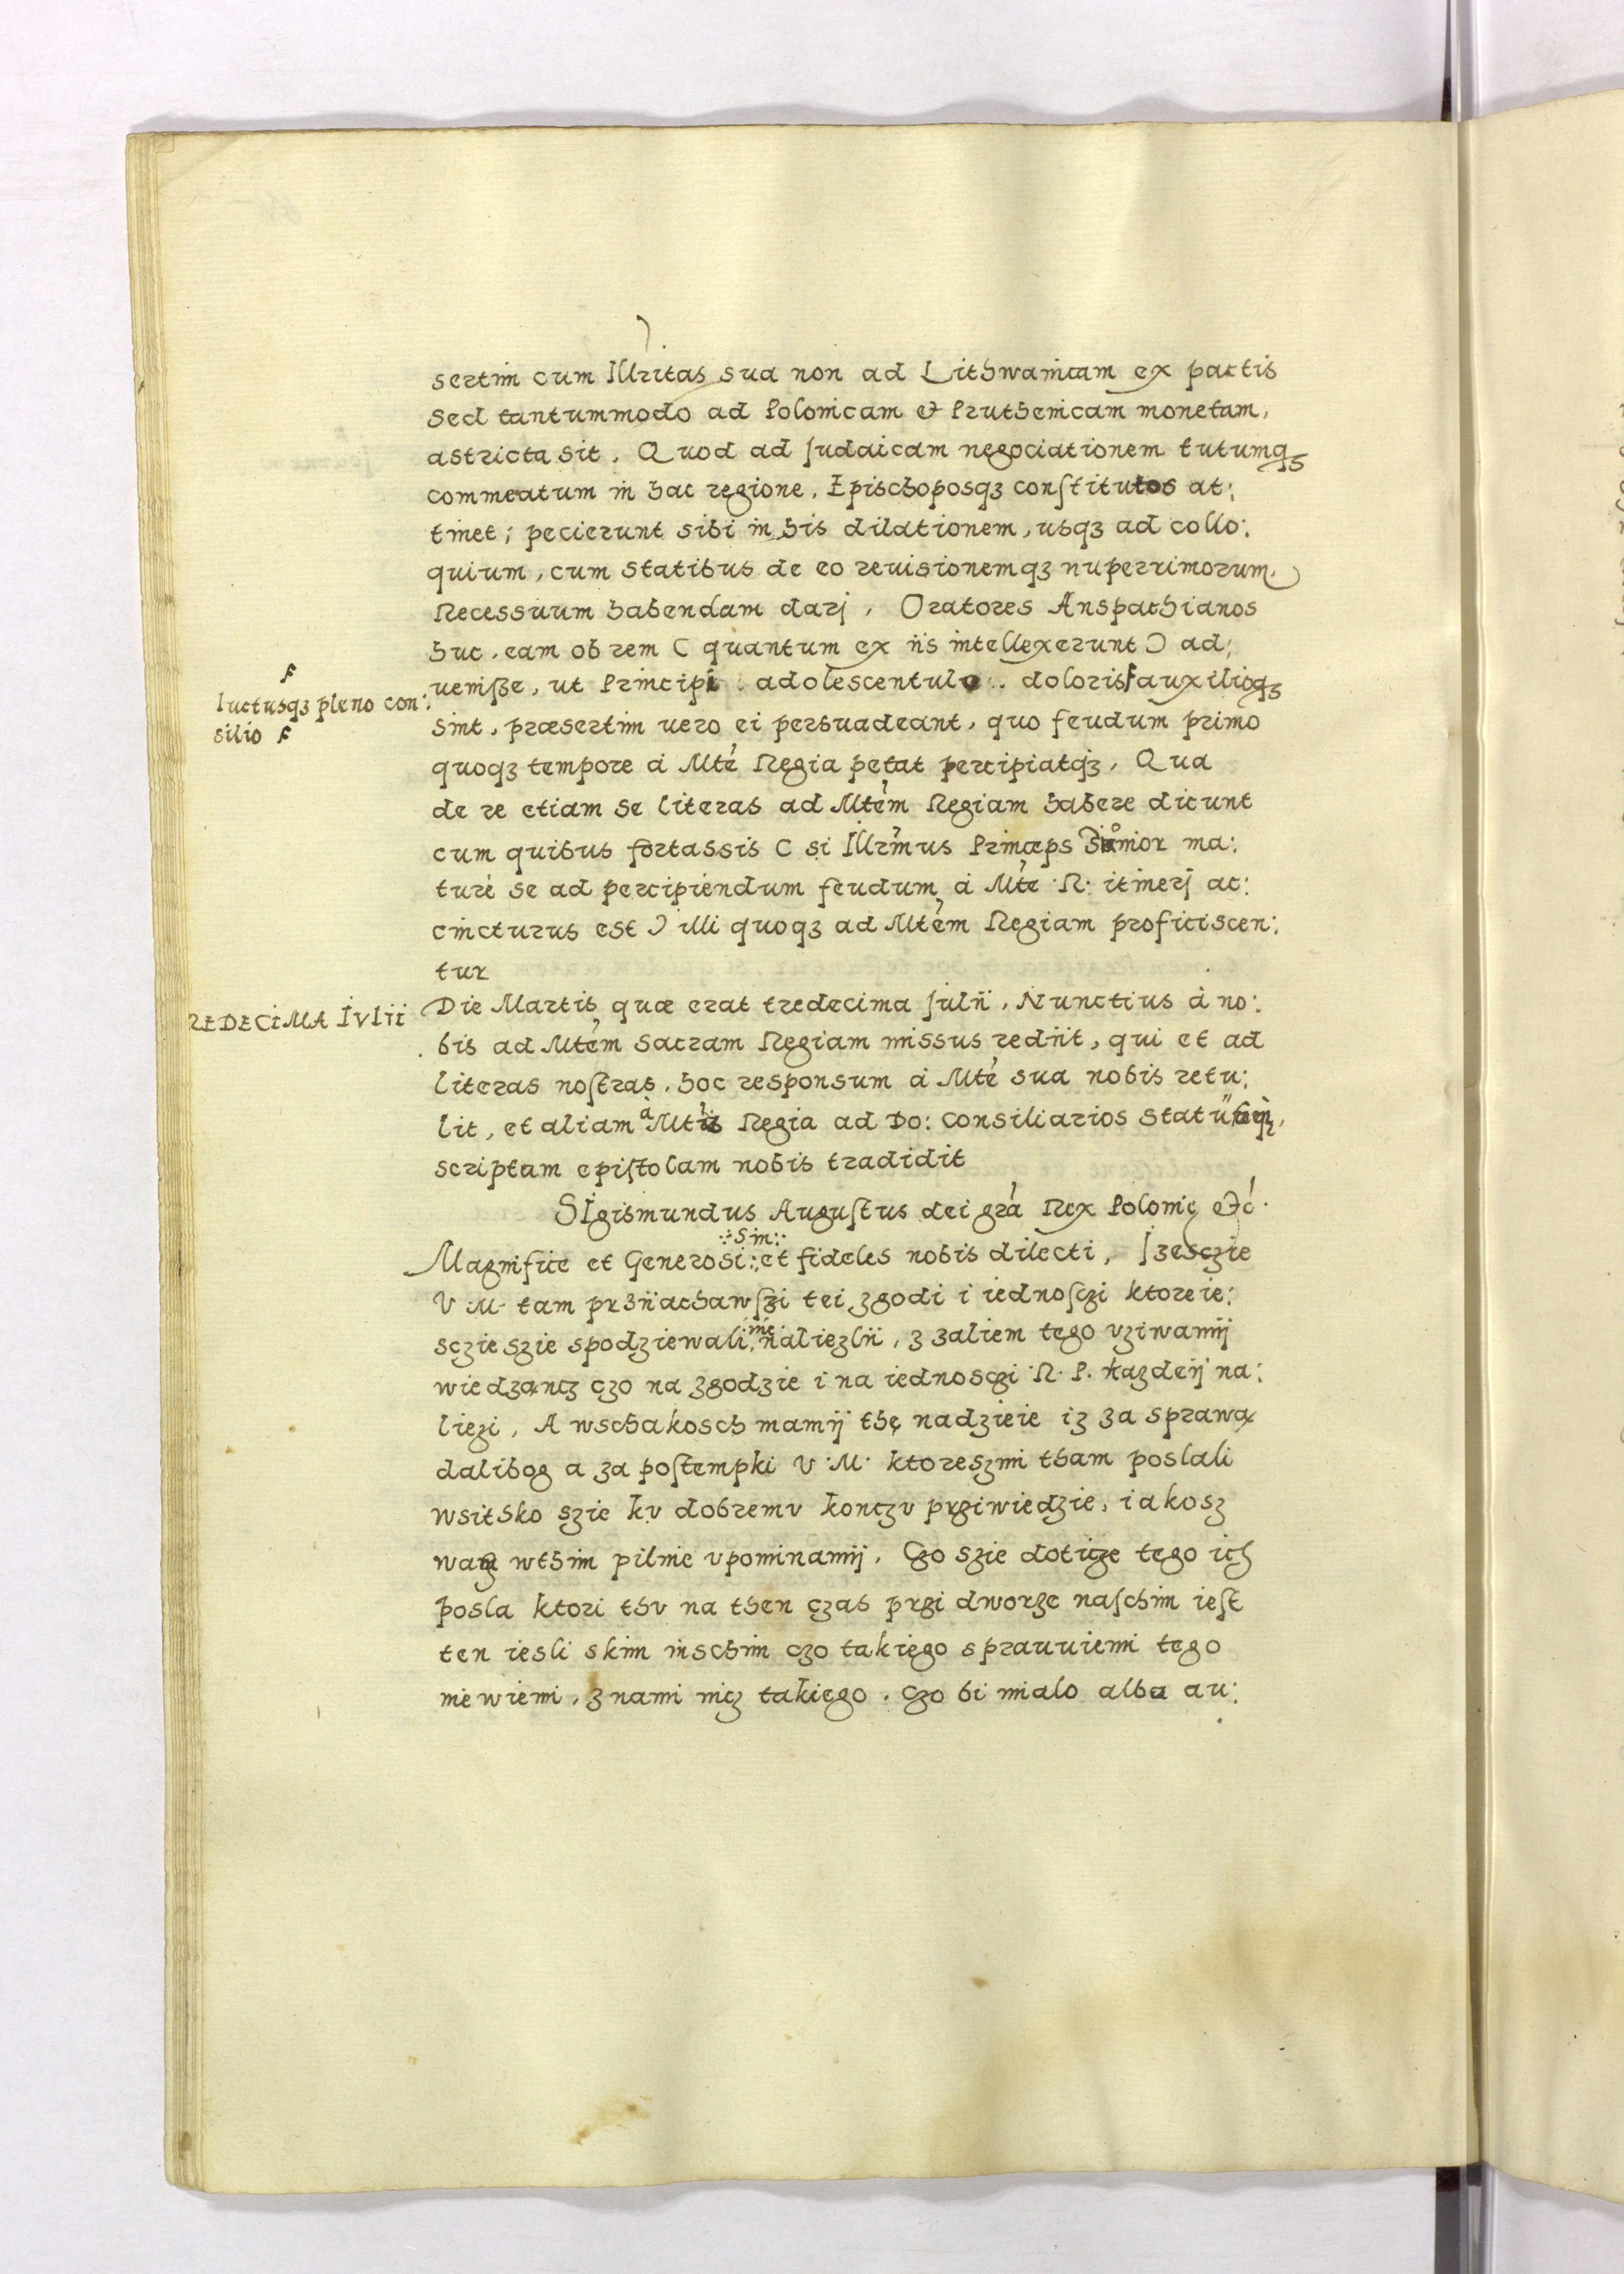 sertim cum Illritas sua non ad Lithwanicam ex pactis
sed tantummodo ad Polonicam et Pruthenicam monetam,
astricta sit. Quod ad Judaicam negociationem tutumqꝫ
commeatum in hac regione, Epischoposqꝫ conſtitutos at:
tinet; pecierunt sibi in his dilationem, usqꝫ ad collo:
quium, cum statibus de eo reuisionemqꝫ nuperrimorum
Recessuum habendam darj, Oratores Anspachianos
huc, eam ob rem ( quantum ex iis intellexerunt ) ad:
uenisse, ut Principi adolescentulo doloris auxilioqꝫ
luctusqꝫ pleno con:
silio
sint, præsertim uero ei persuadeant, quo feudum primo
quoqꝫ tempore à Mte Regia petat percipiatqꝫ, Qua
de re etiam se literas ad Mtem Regiam habere dicunt
cum quibus fortassis ( si Illrmus Princeps Junior ma:
turè se ad percipiendum feudum à Mte R: itinerj ac:
cincturus est ) illi quoqꝫ ad Mtem Regiam proficiscen:
tur
REDECIMA IVLII
Die Martis quæ erat tredecima Julii, Nunctius à no:
bis ad Mtem Sacram Regiam missus rediit, qui et ad
literas noſtras, hoc responsum à Mte sua nobis retu:
lit, et aliam à Mte Regia ad Do: Consiliarios
scriptam epiſtolam nobis tradidit
SIgismundus Auguſtus dei gra Rex Polonię etc
Magnifice et Generosi sin: et fideles nobis dilecti, Jzesczie
V. M. tam przÿachawſzi tei zgodi i iednoſczi ktoreie:
sczie szie spodziewali nie naliezlii, z zaliem tego vziwamÿ
wiedzancz czo na zgodzie i na iednosczi R. P. kazdeÿ na:
liezi, A wschakosch mamÿ thę nadzieie iz za sprawą
dalibog a za poſtempki V. M. ktoreszmi tham poslali
wsitsko szie kv dobremv konczv prziwiedzie, iakosz
wthim pilnie vpominamÿ. Czo szie doticze tego ich
posla ktori thv na then czas przi dworze naſchim ieſt
ten iesli skim inschim czo takiego sprauuiemi tego
niewiemi, z nami nicz takiego, czo bi mialo alba au: